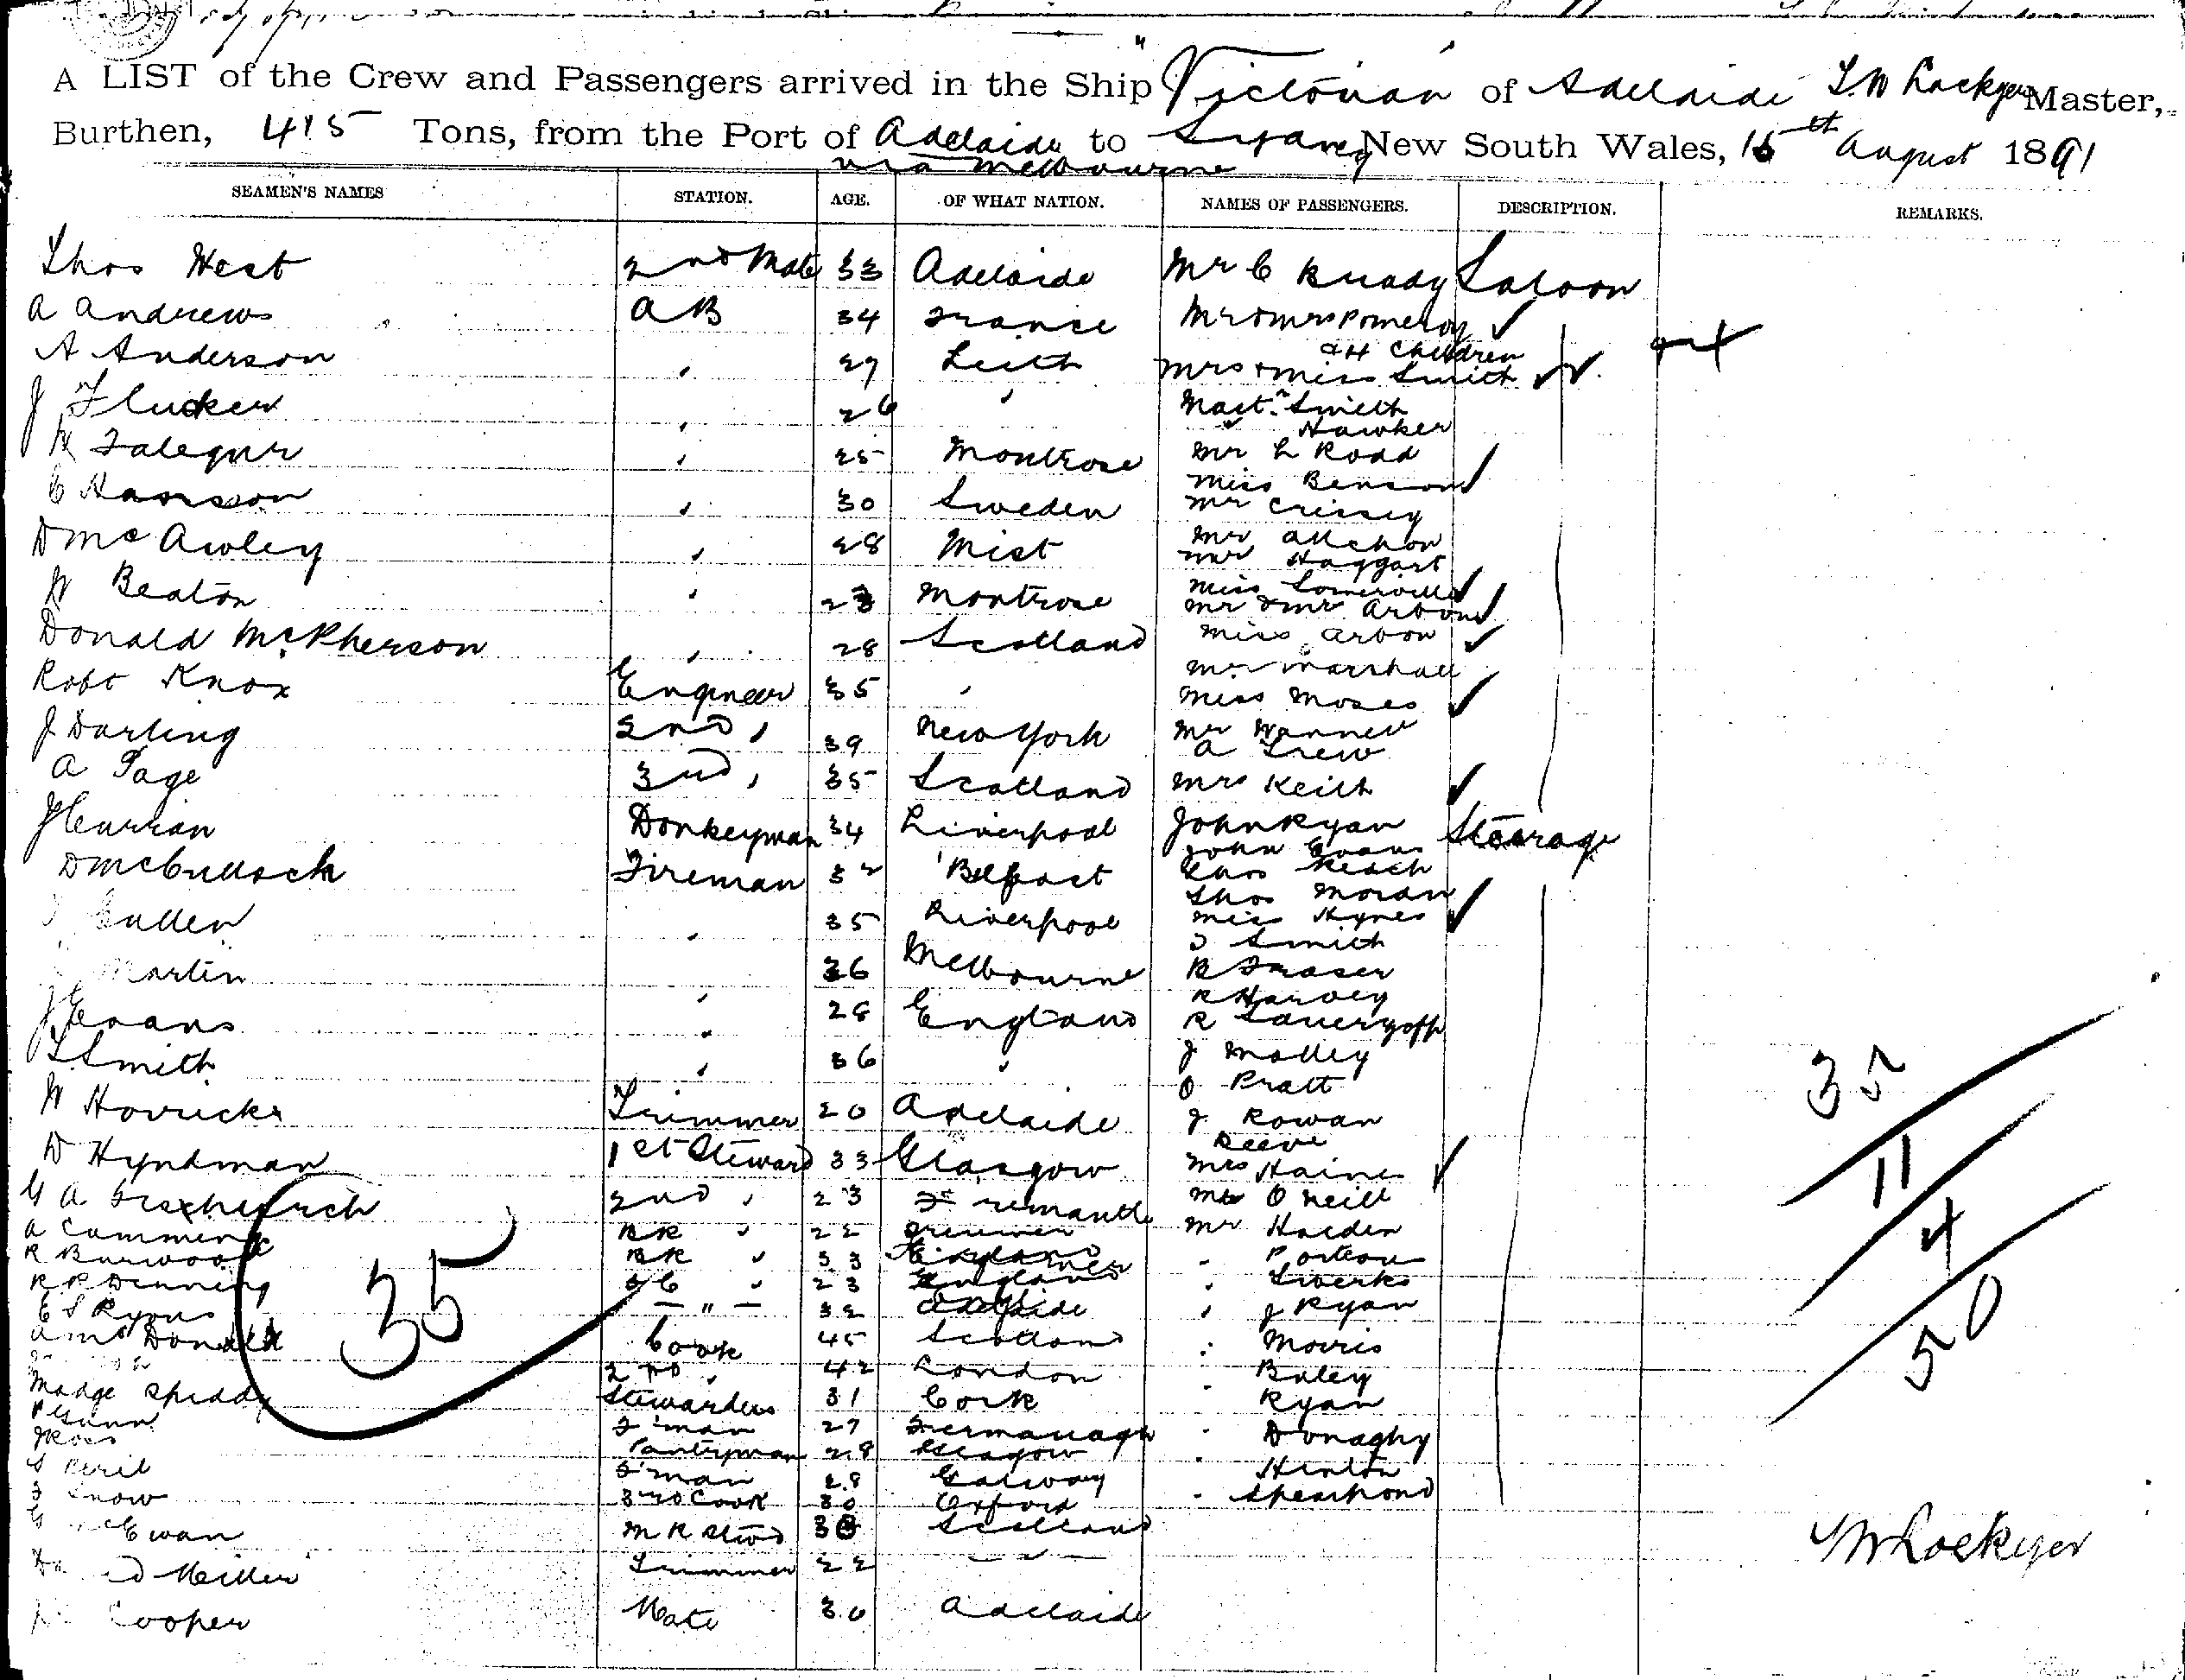 A LIST of the Crew and Passengers arrived in the Ship "Victorian" of Adelaide T.W Lockyer Master,
Burthen, 415 Tons, from the Port of Adelaide to Sydney New South Wales, 15th August 1891
via Melbourne
SEAMEN'S NAMES STATION. AGE. OF WHAT NATION. NAMES OF PASSENGERS. DESCRIPTION. REMARKS.
Thos West 2nd Mate 33 Adelaide Mr C Bready Saloon
A Andrews AB 34 France Mr & Mrs Pomeroy
& 4 Children
A Anderson " 27 Leith Mrs & Miss Smith
J Flucker " 26 " Mast. Smith
" Hawker
" 25 Montrose Mr L Rodd
Miss Benson
C Hansson " 30 Sweden Mr Crissey
D McAwley " 28 Mr
Mr Haggart
W Beaton " 23 Montrose Miss Somerville
Mr & Mrs Arbon
Donald McPherson " 28 Scotland Miss Arbon
Mr Marshall
Robt Knox Engineer 35 " Miss Moses
J Darling 2nd " 39 New York Mr
A Trew
A Page 3rd " 35 Scotland Mrs Keith
J Curran Donkeyman 34 Liverpool John Ryan Steerage
John Evans
D McCullock Fireman 32 Belfast Thos Keach
Thos Moran
Cullen " 35 Liverpool Miss Hynes
Smith
Martin 36 Melbourne R Fraser
R Harvey
J Evans " 28 England R
T Smith " 36 " J Molley
O Pratt
W Horricks Trimmer 20 Adelaide J Rowan
Reeve
D Hyndman 1st Steward 33 Glasgow Mrs Haines
G A 2nd " 23 Fremantle O'Neill
A Cumming BR " 22 Mr Holden
R Burwood BR " 33 " Porteou
R R Denning FC " 23 England "
E S Ryons — " — 32 Adelaide " J Ryan
A McDonald Cook 45 Scotland " Morris
2nd " 42 London " Baley
Madge Shiddy Stewardess 31 Cork " Ryan
P Gunn F'man 27 Fermanagh " Donaghy
J Ross Pantryman 28 Glasgow " Hinton
F'man 28 Galway " Spearpond
Snow 3rd Cook 30 Oxford
Ewan M R Stwd Scotland
Miller Trimmer 22 — " —
Cooper Mate 30 Adelaide
35
35
11
4
50
T W Lockyer